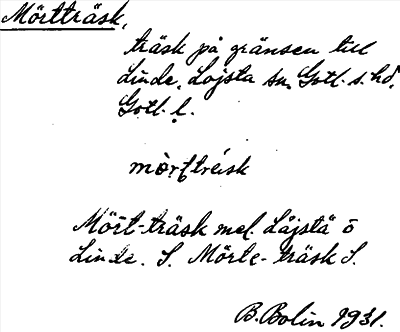 Mörtträsk,
träsk på gränsen till
Linde, Lojsta sn, Gotl. s. hd,
Gotl. l.
mòrttrèisk
Mört-träsk mel. Låjstä ö
Linde. S. Mörte-träsk S.
B. Bolin 1931.